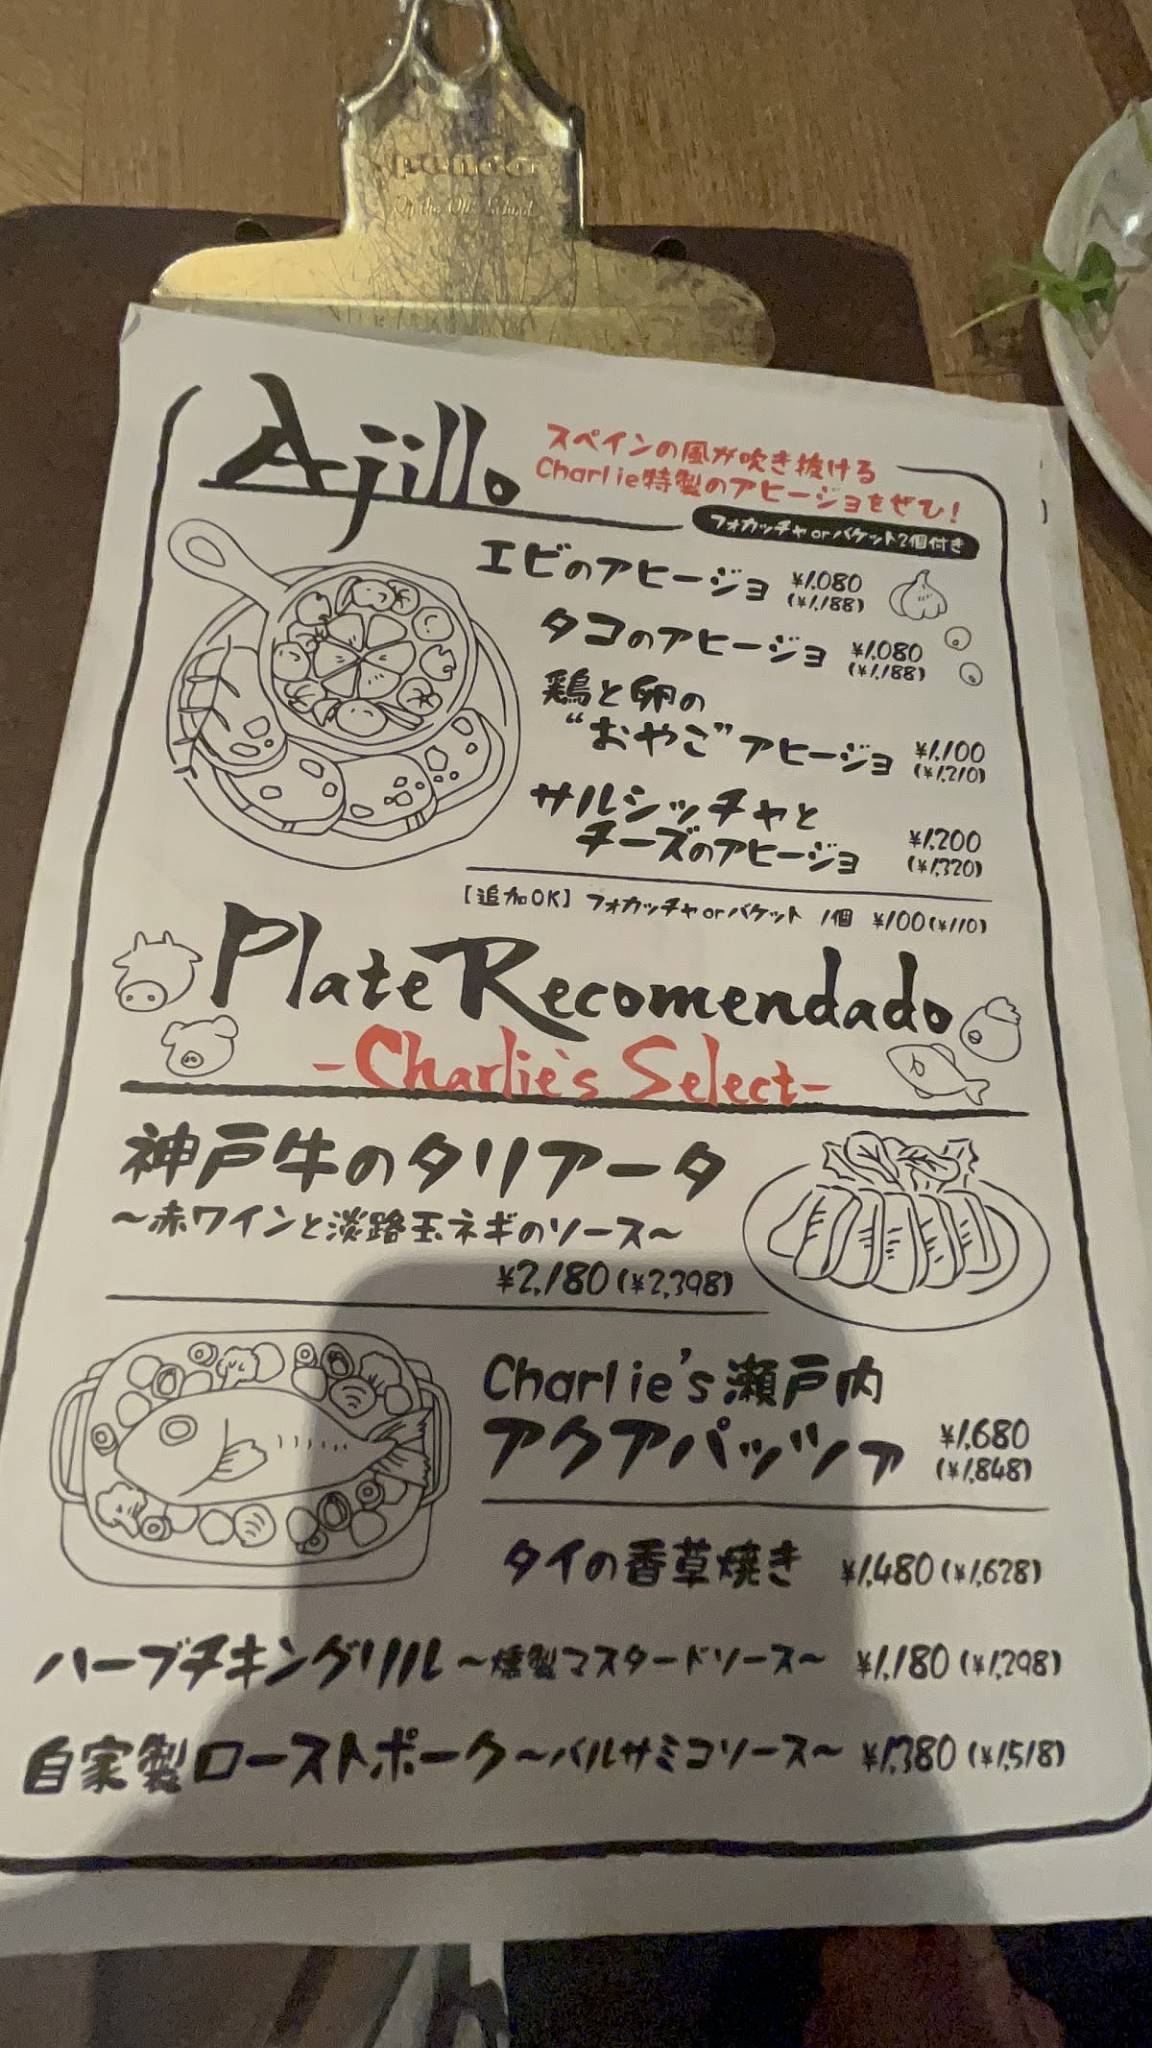 Of the Old School
Ajillo
スペインの風が吹き抜ける
Charlie特製のアヒージョをぜひ!
フォカッチャorバケット2個付き
エビのアヒージョ ¥1,080
(¥1,188)
タコのアヒージョ ¥1,080
(¥1,188)
鶏と卵の
“おやこ”アヒージョ ¥1,100
(¥1,210)
サルシッチャと
チーズのアヒージョ ¥1,200
(¥1,320)
【追加OK】フォカッチャorバケット 1個 ¥100(¥110)
Plate Recomendado
-Charlie's Select-
神戸牛のタリアータ
〜赤ワインと淡路玉ネギのソース〜
¥2,180(¥2,398)
Charlie's瀬戸内
アクアパッツァ ¥1,680
(¥1,848)
タイの香草焼き ¥1,480(¥1,628)
ハーブチキングリル〜燻製マスタードソース〜 ¥1,180(¥1,298)
自家製ローストポーク〜バルサミコソース〜 ¥1,380(¥1,518)